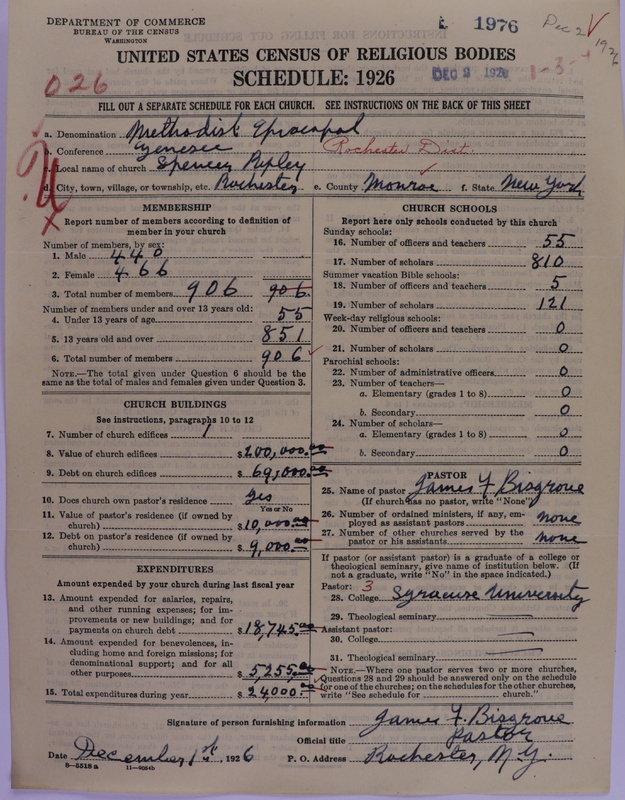 DEPARTMENT OF COMMERCE
BUREAU OF THE CENSUS
WASHINGTON
1976
Dec 2
1926
UNITED STATES CENSUS OF RELIGIOUS BODIES
SCHEDULE: 1926
DEC 2 1926
1-3-
026
FILL OUT A SEPARATE SCHEDULE FOR EACH CHURCH. SEE INSTRUCTIONS ON THE BACK OF THIS SHEET
a. Denomination Methodist Episcopal
b. Conference Genesee Rochester Dist.
c. Local name of church Spencer Ripley
d. City, town, village, or township, etc. Rochester e. County Monroe f. State New York
MEMBERSHIP
Report number of members according to definition of member in your church
Number of members, by sex:
1. Male 440
2. Female 466
3. Total number of members 906 906
Number of members under and over 13 years old:
4. Under 13 years of age 55
5. 13 years old and over 851
6. Total number of members 906
NOTE.—The total given under Question 6 should be the
same as the total of males and females given under Question 3.
CHURCH BUILDINGS
See instructions, paragraphs 10 to 12
7. Number of church edifices 1
8. Value of church edifices $200,000.00
9. Debt on church edifices $69,000.00
10. Does church own pastor's residence yes
Yes or No
11. Value of pastor's residence (if owned by
church) $10,000.00
12. Debt on pastor's residence (if owned by
church) $9,000.00
EXPENDITURES
Amount expended by church during last fiscal year
13. Amount expended for salaries, repairs,
and other running expenses; for im-
provements or new buildings; and for
payments on church debt $18,745.00
14. Amount expended for benevolences, in-
cluding home and foreign missions; for
denominational support; and for all
other purposes $5,255.00
15. Total expenditures during year $24,000.00
CHURCH SCHOOLS
Report here only schools conducted by this church
Sunday schools:
16. Number of officers and teachers 55
17. Number of scholars 810
Summer vacation Bible schools:
18. Number of officers and teachers 5
19. Number of scholars 121
Week-day religious schools:
20. Number of officers and teachers 0
21. Number of scholars 0
Parochial schools:
22. Number of administrative officers 0
23. Number of teachers—
a. Elementary (grades 1 to 8) 0
b. Secondary 0
24. Number of scholars—
a. Elementary (grades 1 to 8) 0
b. Secondary 0
PASTOR
25. Name of pastor James F Bisgrove
(If church has no pastor, write "None")
26. Number of ordained ministers, if any, em-
ployed as assistant pastors none
27. Number of other churches served by the
pastor or his assistants none
If pastor (or assistant pastor) is a graduate of a college or
theological seminary, give name of institution below. (If
not a graduate, write "No" in the space indicated.)
Pastor: 3
28. College Syracuse University
29. Theological seminary —
Assistant pastor:
30. College —
31. Theological seminary —
NOTE.—Where one pastor serves two or more churches,
Questions 28 and 29 should be answered only on the schedule
for one of the churches; on the schedules for the other churches,
write "See schedule for church."
Signature of person furnishing information James F. Bisgrove
Official title Pastor
Date December 1st, 1926 P. O. Address Rochester, N.Y.
8-5518a 11-9054b